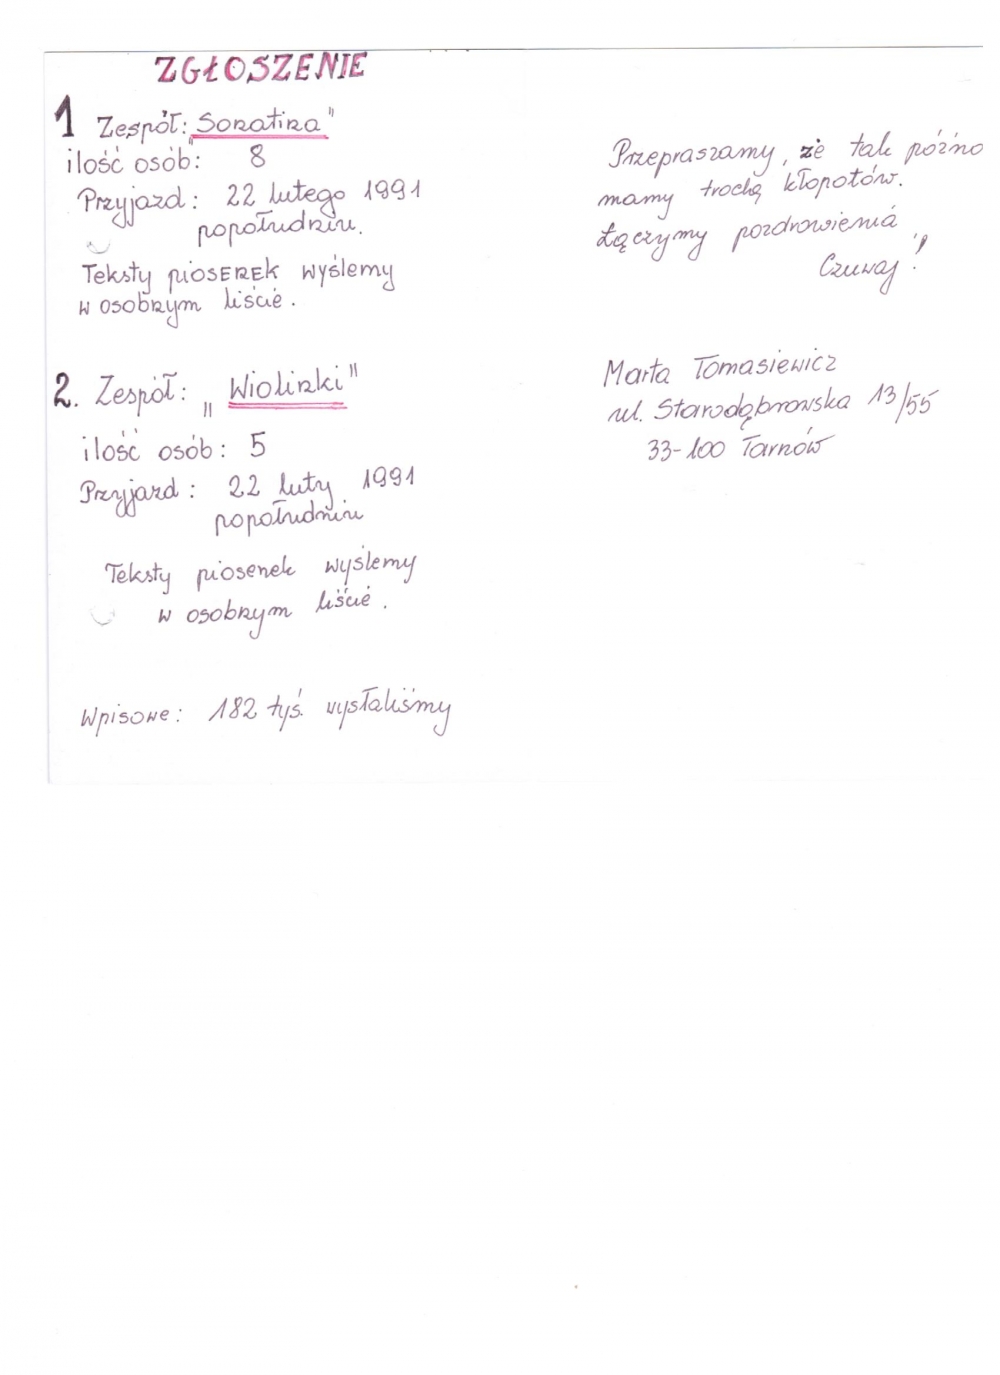 ZGŁOSZENIE
1 Zespół: "Sonatina"
ilość osób: 8
Przyjazd: 22 lutego 1991
popołudniu.
Teksty piosenek wyślemy
w osobnym liście.
2. Zespół: „Wiolinki"
ilość osób: 5
Przyjazd: 22 luty 1991
popołudniu
Teksty piosenek wyślemy
w osobnym liście.
Wpisowe: 182 tyś. wysłaliśmy
Przepraszamy, że tak późno
mamy trochę kłopotów.
Łączymy pozdrowienia
Czuwaj!
Marta Tomasiewicz
ul. Starodąbrowska 13/55
33-100 Tarnów